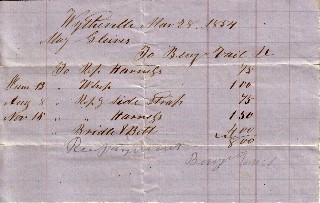 Wytheville Mar 28, 1854
Maj
To Benj Vail Dr
To Rep Harness 75
13 " Whip 1.00
Aug 8 " Rep g side Strap 75
Nov 15 " Harness 1.50
" Bridle & Bitt 4.00
8.00
Rec payment
Benj Vail